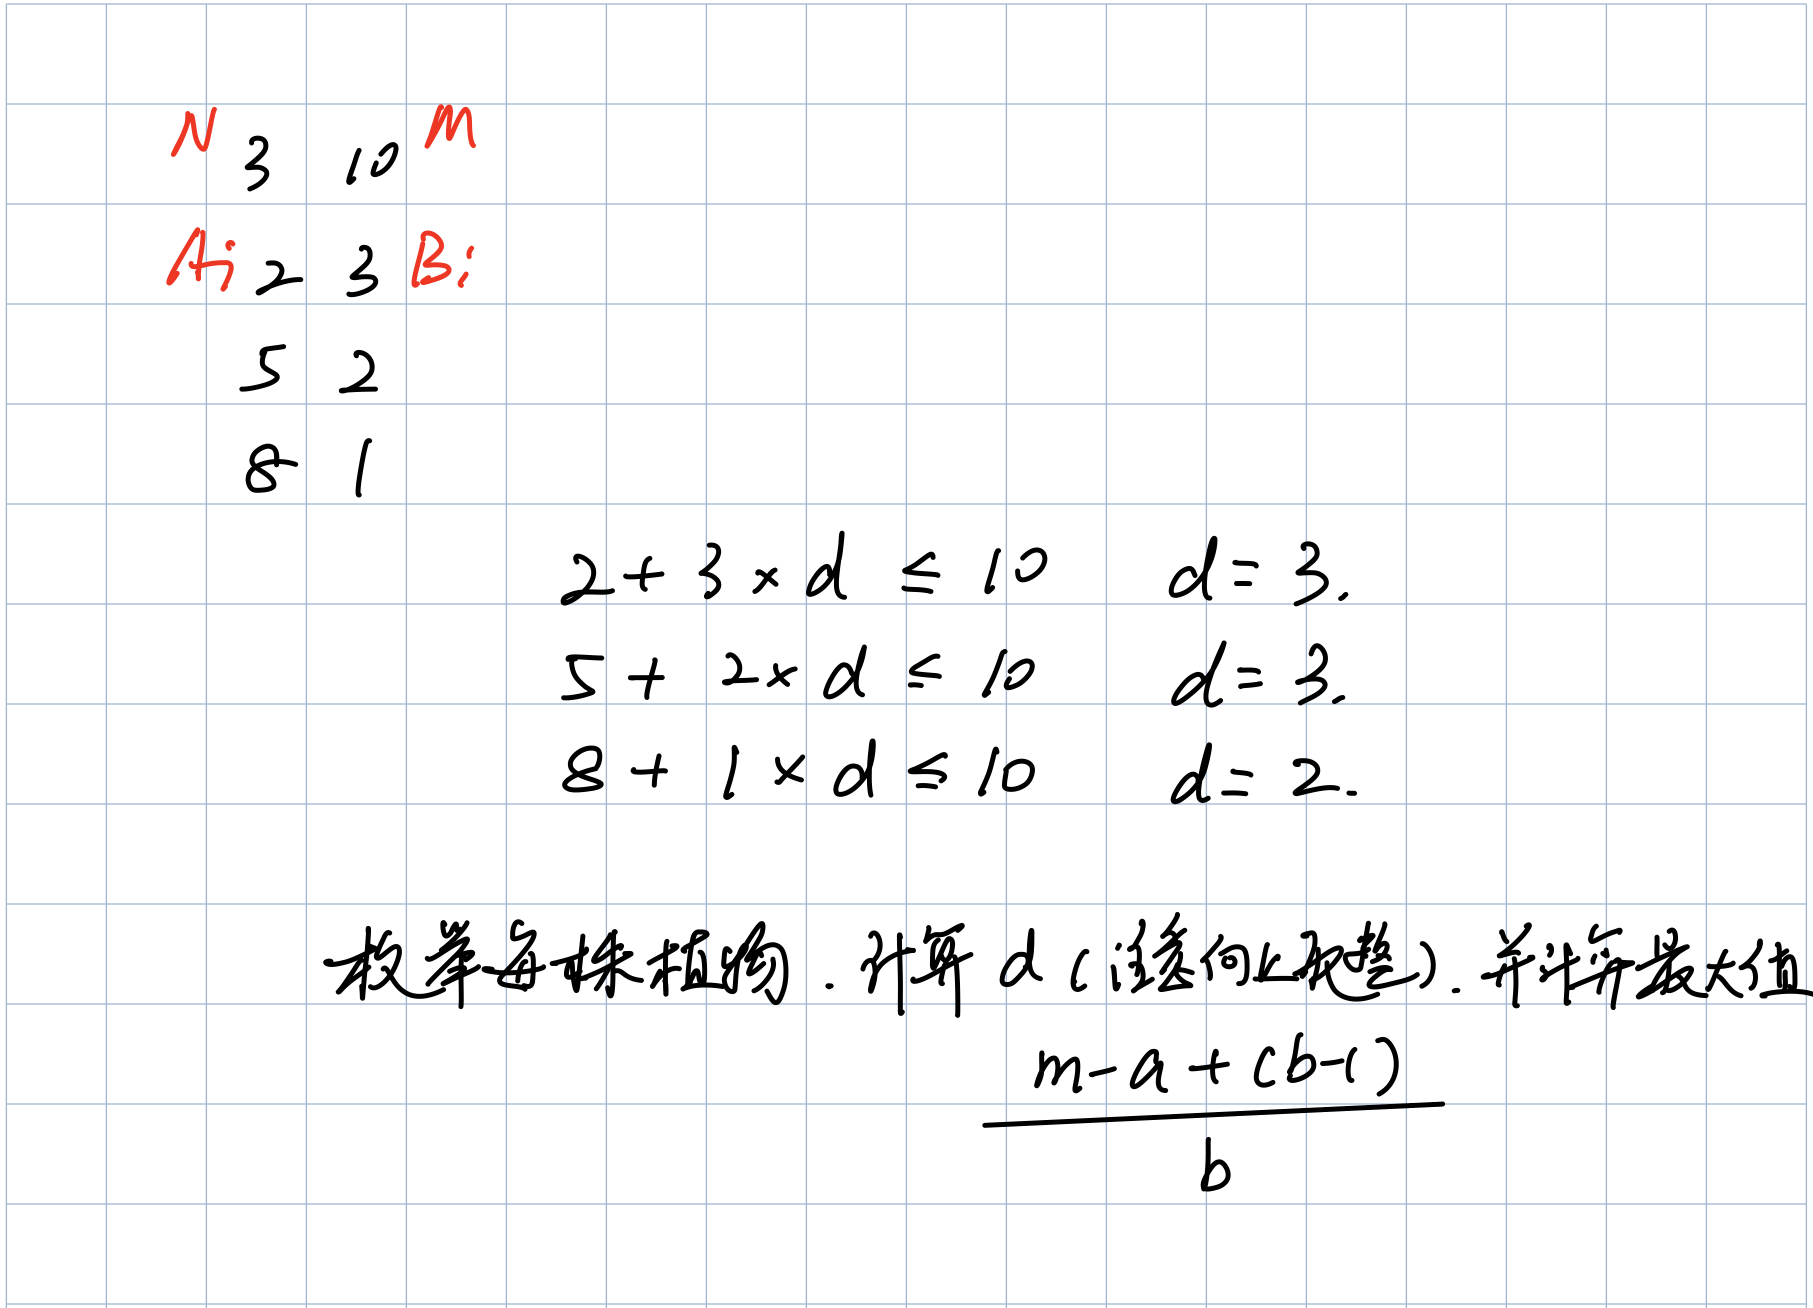 N 3 10 M
Ai 2 3 Bi
5 2
8 1
2 + 3 × d ≤ 10 d = 3.
5 + 2 × d ≤ 10 d = 3.
8 + 1 × d ≤ 10 d = 2.
枚举每株植物. 计算 d (注意向上取整). 并计算最大值
m - a + (b-1)
b